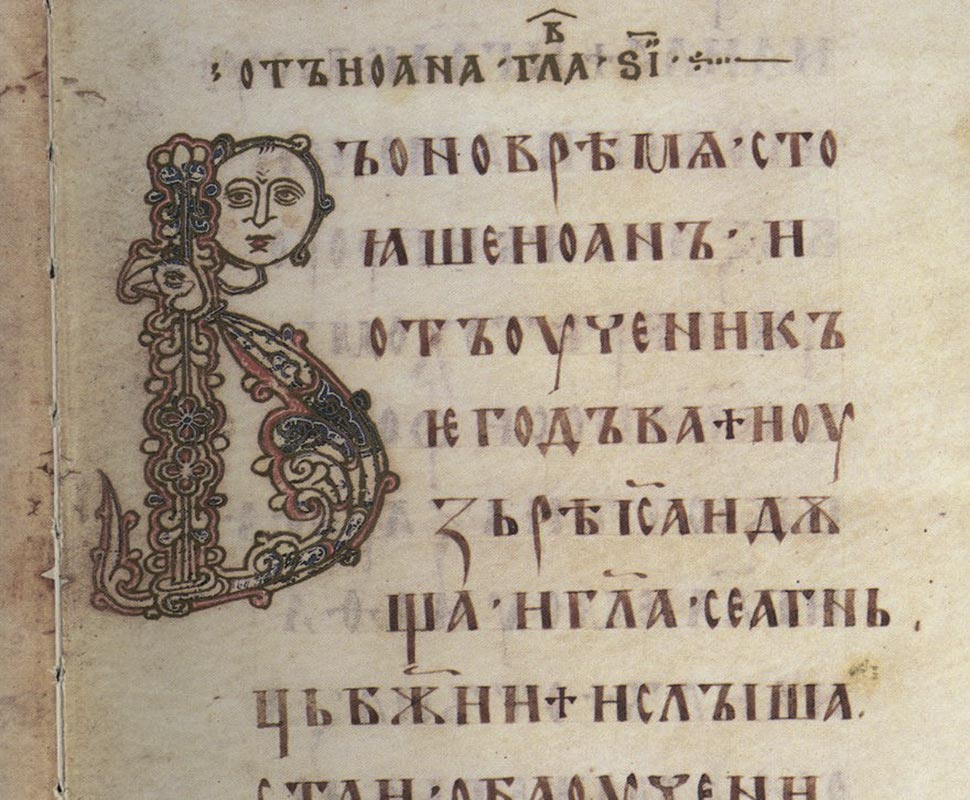 · отъиоана · глав҃ · ѕ҃і ·
Въоноврѣмѧ · сто
ꙗшеиоанъ · и
отъоученикъ
ѥгодъва + иоу
зьрѣіс҃аидѫ
ща · игл҃а · сеагнь
цьбж҃ии + ислꙑша
стаи · обаоучени